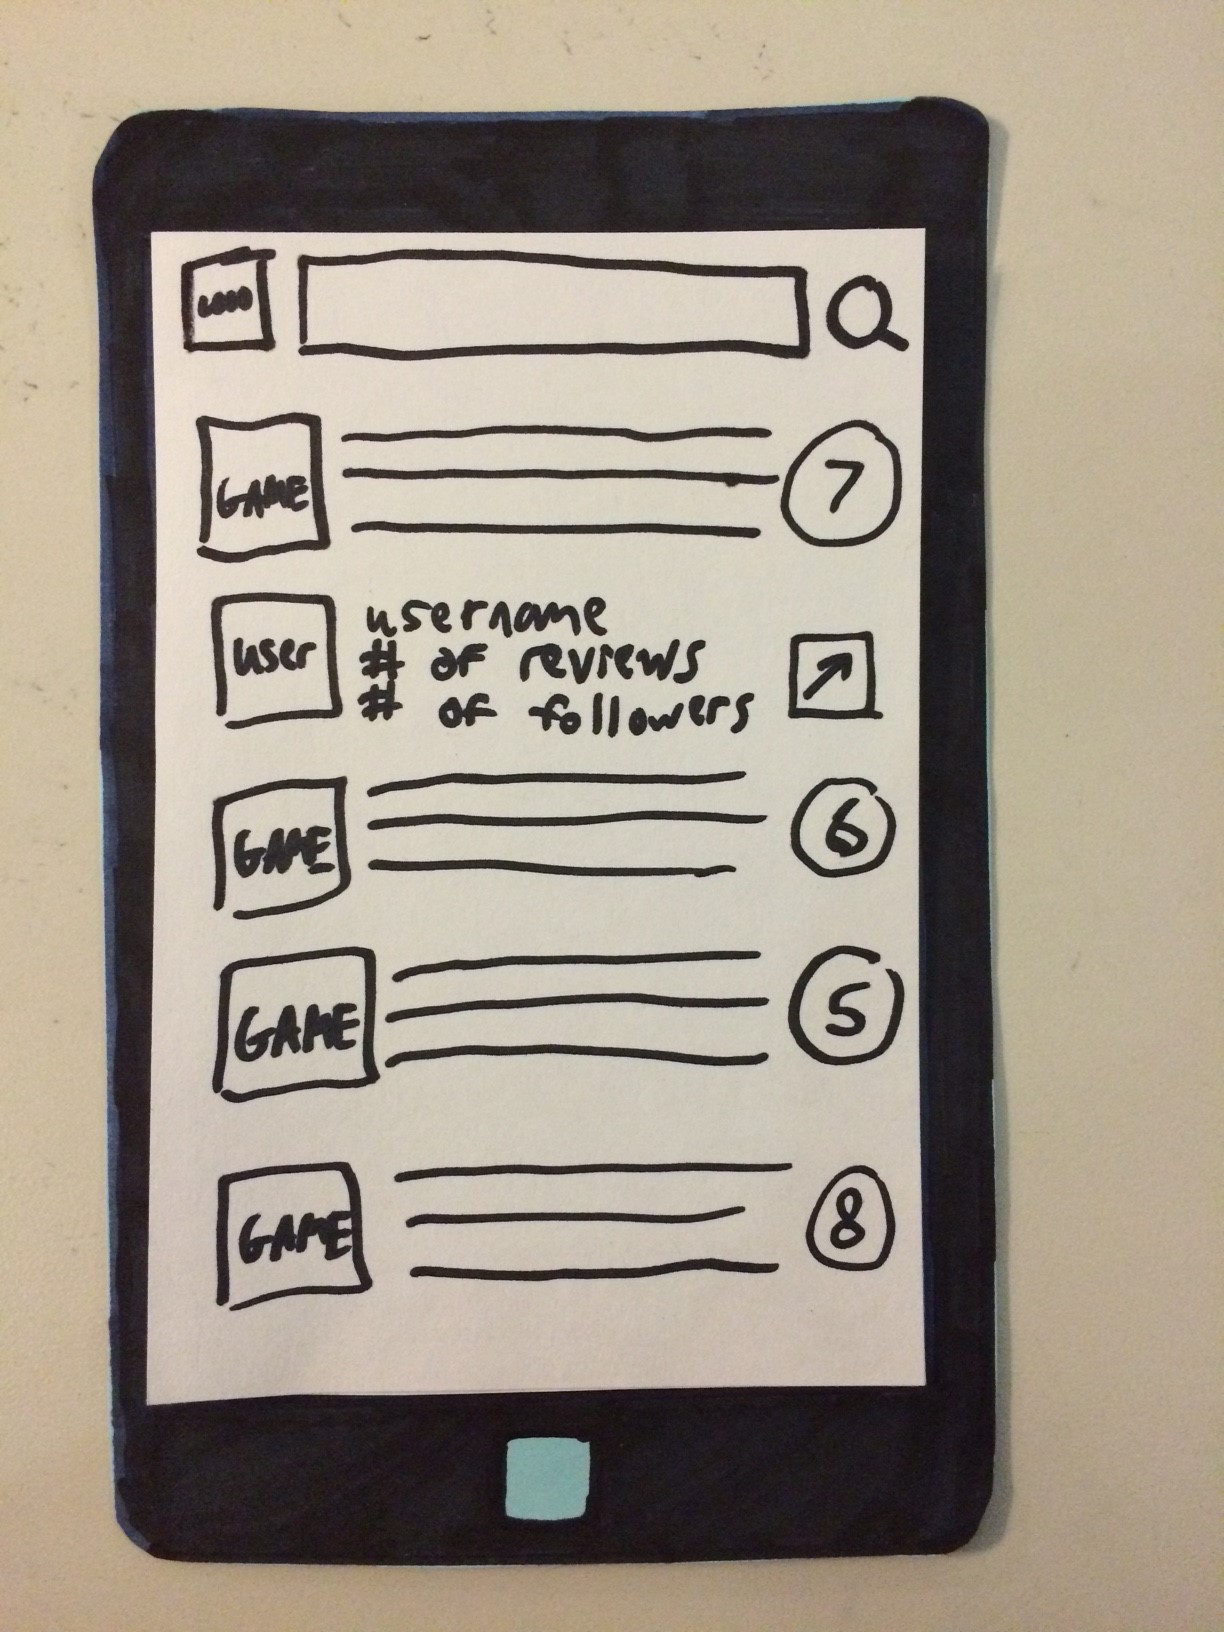 LOGO
GAME 7
user
username
# of reviews
# of followers
GAME 6
GAME 5
GAME 8